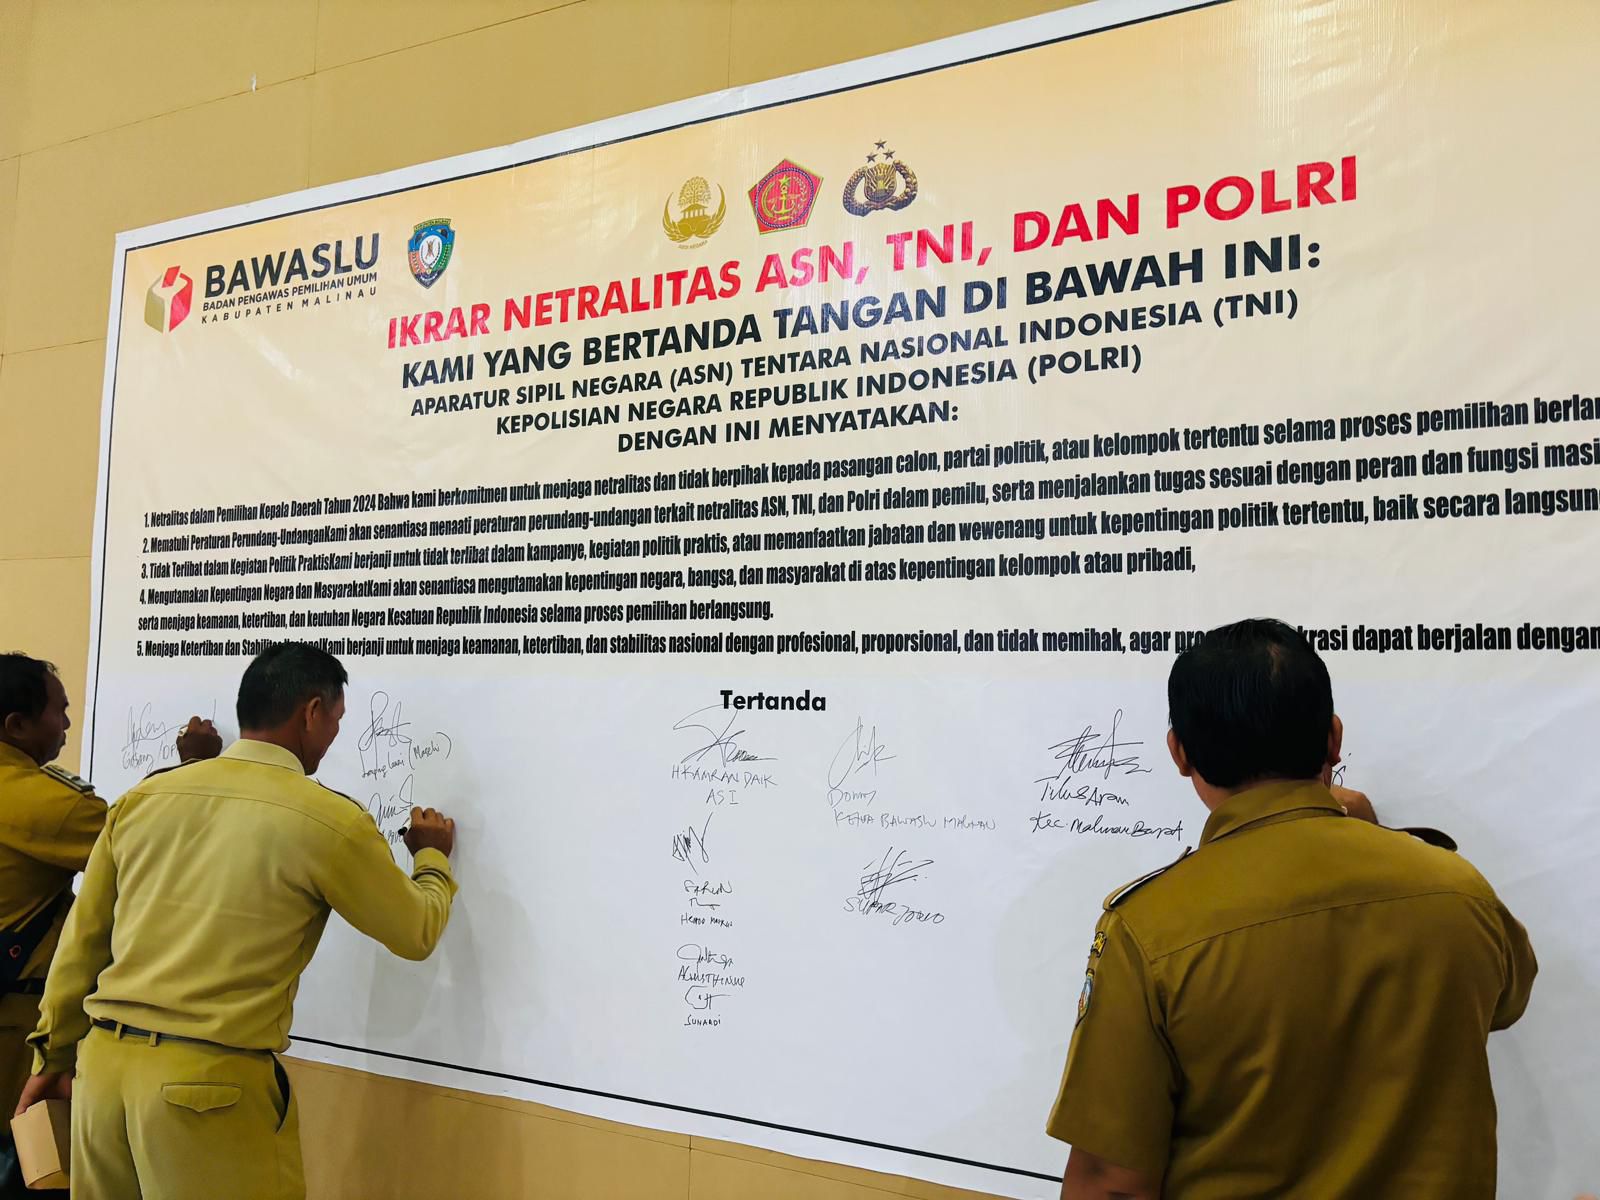 BAWASLU
BADAN PENGAWAS PEMILIHAN UMUM
KABUPATEN MALINAU
IKRAR NETRALITAS ASN, TNI, DAN POLRI
KAMI YANG BERTANDA TANGAN DI BAWAH INI:
APARATUR SIPIL NEGARA (ASN) TENTARA NASIONAL INDONESIA (TNI)
KEPOLISIAN NEGARA REPUBLIK INDONESIA (POLRI)
DENGAN INI MENYATAKAN:
1. Netralitas dalam Pemilihan Kepala Daerah Tahun 2024 Bahwa kami berkomitmen untuk menjaga netralitas dan tidak berpihak kepada pasangan calon, partai politik, atau kelompok tertentu selama proses pemilihan berlan
2. Mematuhi Peraturan Perundang-UndanganKami akan senantiasa menaati peraturan perundang-undangan terkait netralitas ASN, TNI, dan Polri dalam pemilu, serta menjalankan tugas sesuai dengan peran dan fungsi masi
3. Tidak Terlibat dalam Kegiatan Politik PraktisKami berjanji untuk tidak terlibat dalam kampanye, kegiatan politik praktis, atau memanfaatkan jabatan dan wewenang untuk kepentingan politik tertentu, baik secara langsun
4. Mengutamakan Kepentingan Negara dan MasyarakatKami akan senantiasa mengutamakan kepentingan negara, bangsa, dan masyarakat di atas kepentingan kelompok atau pribadi,
serta menjaga keamanan, ketertiban, dan keutuhan Negara Kesatuan Republik Indonesia selama proses pemilihan berlangsung.
5. Menjaga Ketertiban dan Stabilitas NasionalKami berjanji untuk menjaga keamanan, ketertiban, dan stabilitas nasional dengan profesional, proporsional, dan tidak memihak, agar pro krasi dapat berjalan dengan
Tertanda
H KAMRAN DAIK
ASI
Donny
KETUA BAWASLU MALINAU
Titus Aran
Kec. Malinau Barat
SUPARJONO
SUNARDI